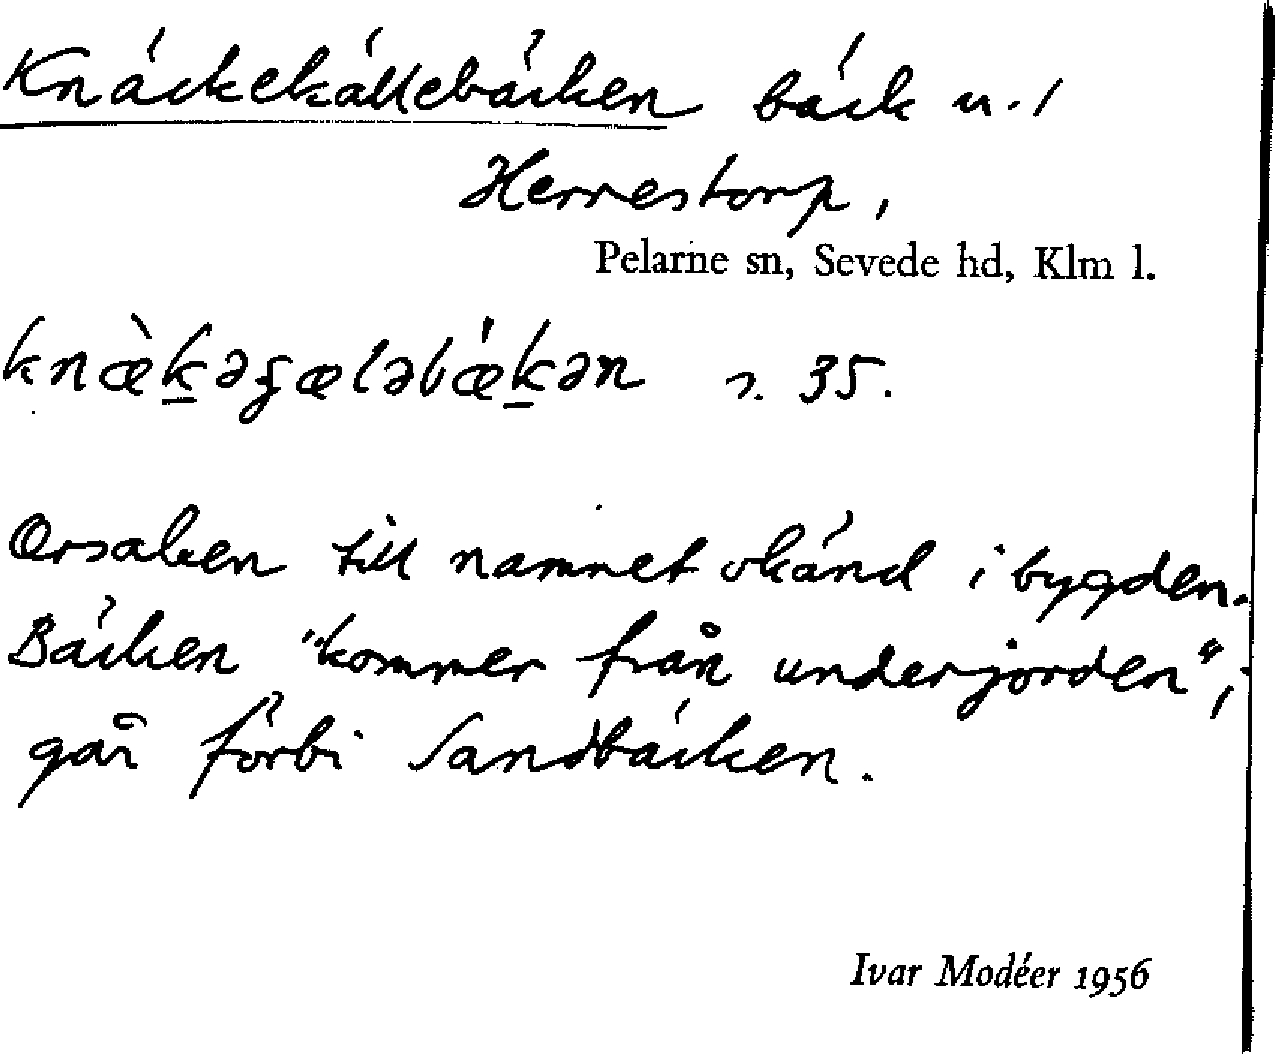 Knäckekällebäcken bäck u. /
Herrestorp,
Pelarne sn, Sevede hd, Klm l.
35.
Orsaken till namnet okänd i bygden.
Bäcken "kommer från underjorden";
går förbi Sandbäcken.
Ivar Modéer 1956